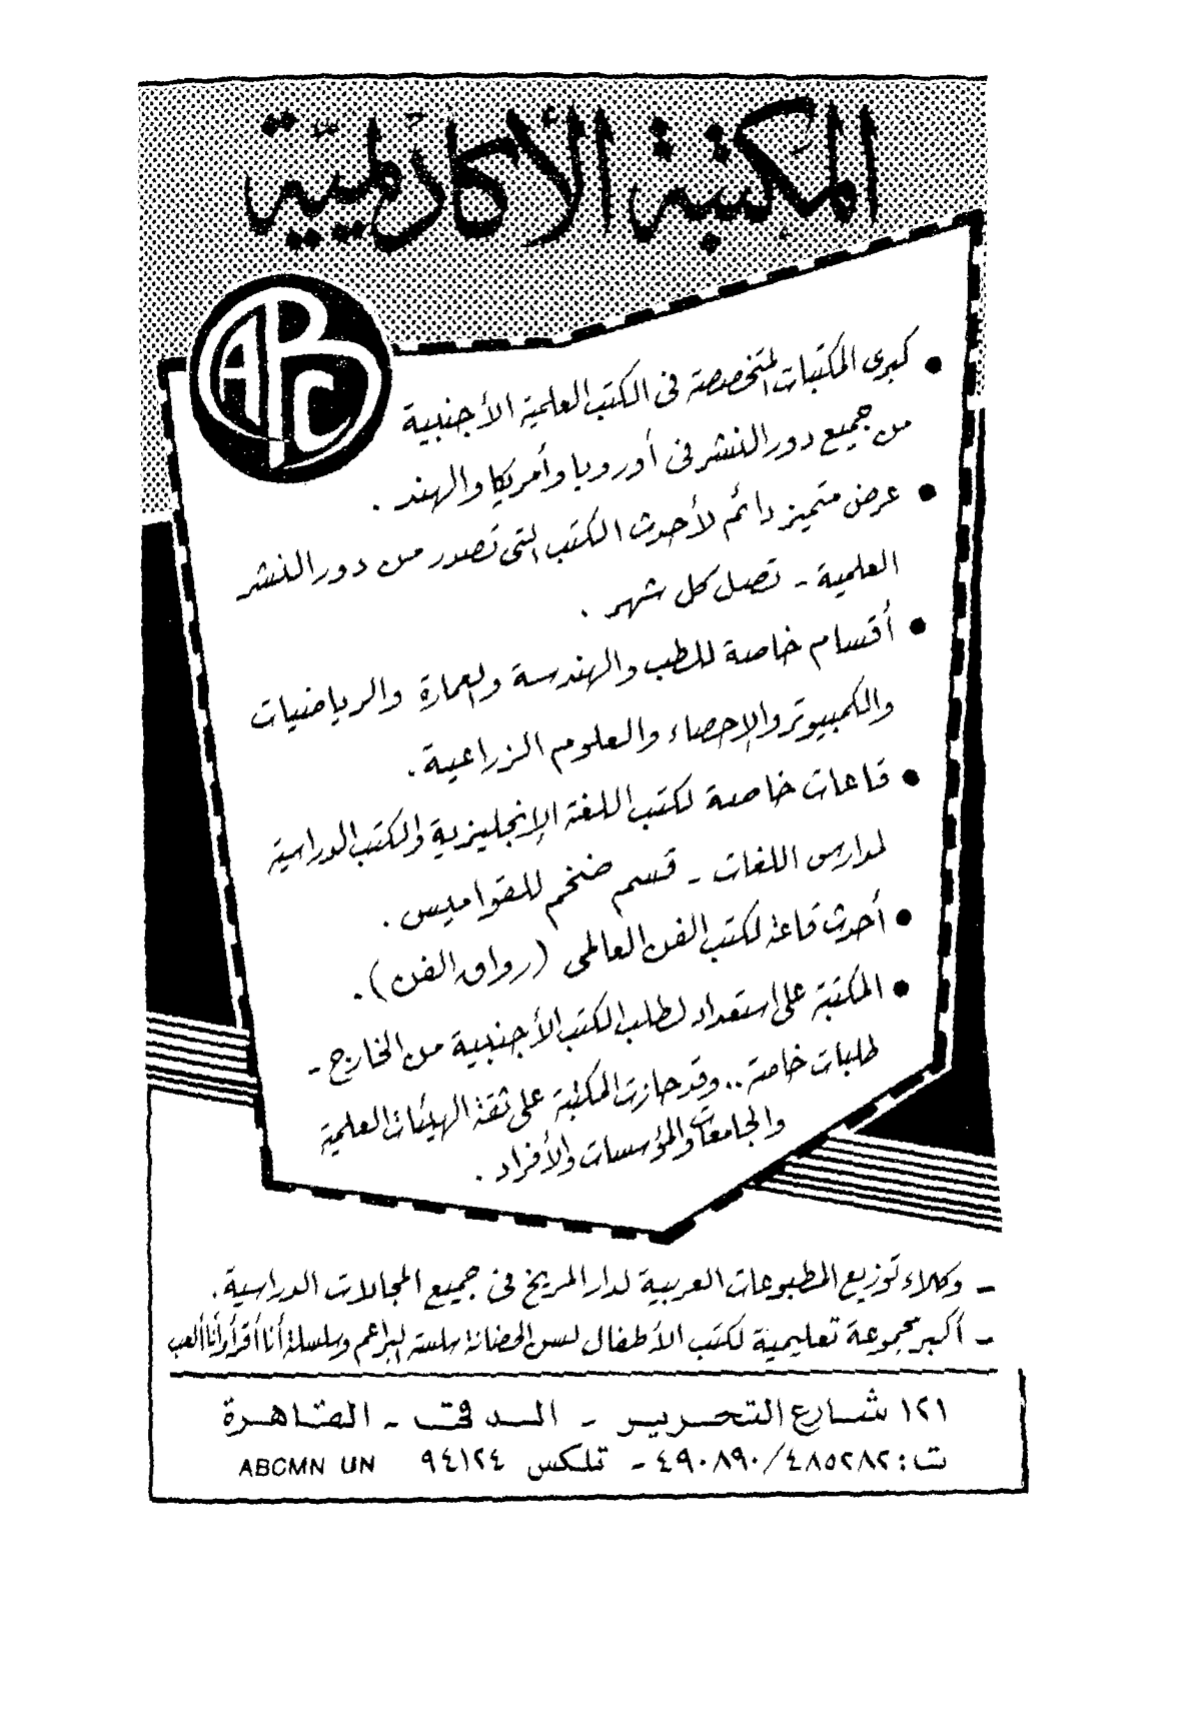 المكتبة الأكاديمية
ABC
• كبرى المكتبات المتخصصة فى الكتب العلمية الأجنبية
من جميع دور النشر فى أوروبا وأمريكا والهند .
• عرض متميز دائم لأحدث الكتب التى تصدر من دور النشر
العلمية - تصل كل شهر .
• أقسام خاصة للطب والهندسة والعمارة والرياضيات
والكمبيوتر والإحصاء والعلوم الزراعية .
• قاعات خاصة لكتب اللغة الإنجليزية والكتب الدراسية
لمدارس اللغات - قسم ضخم للقواميس .
• أحدث قاعة لكتب الفن العالمى (رواق الفن) .
• المكتبة على استعداد لطلب الكتب الأجنبية من الخارج -
طلبات خاصة .. وقد حازت المكتبة على ثقة الهيئات العلمية
والجامعات والمؤسسات والأفراد .
- وكلاء توزيع المطبوعات العربية لدار المريخ فى جميع المجالات الدراسية .
- أكبر مجموعة تعليمية لكتب الأطفال لسن الحضانة سلسلة البراعم وسلسلة أنا أقرأ وأنا ألعب
١٢١ شارع التحرير - الدقى - القاهرة
ت : ٤٨٥٢٨٢/٤٩٠٨٩٠ - تلكس ٩٤١٢٤ ABCMN UN